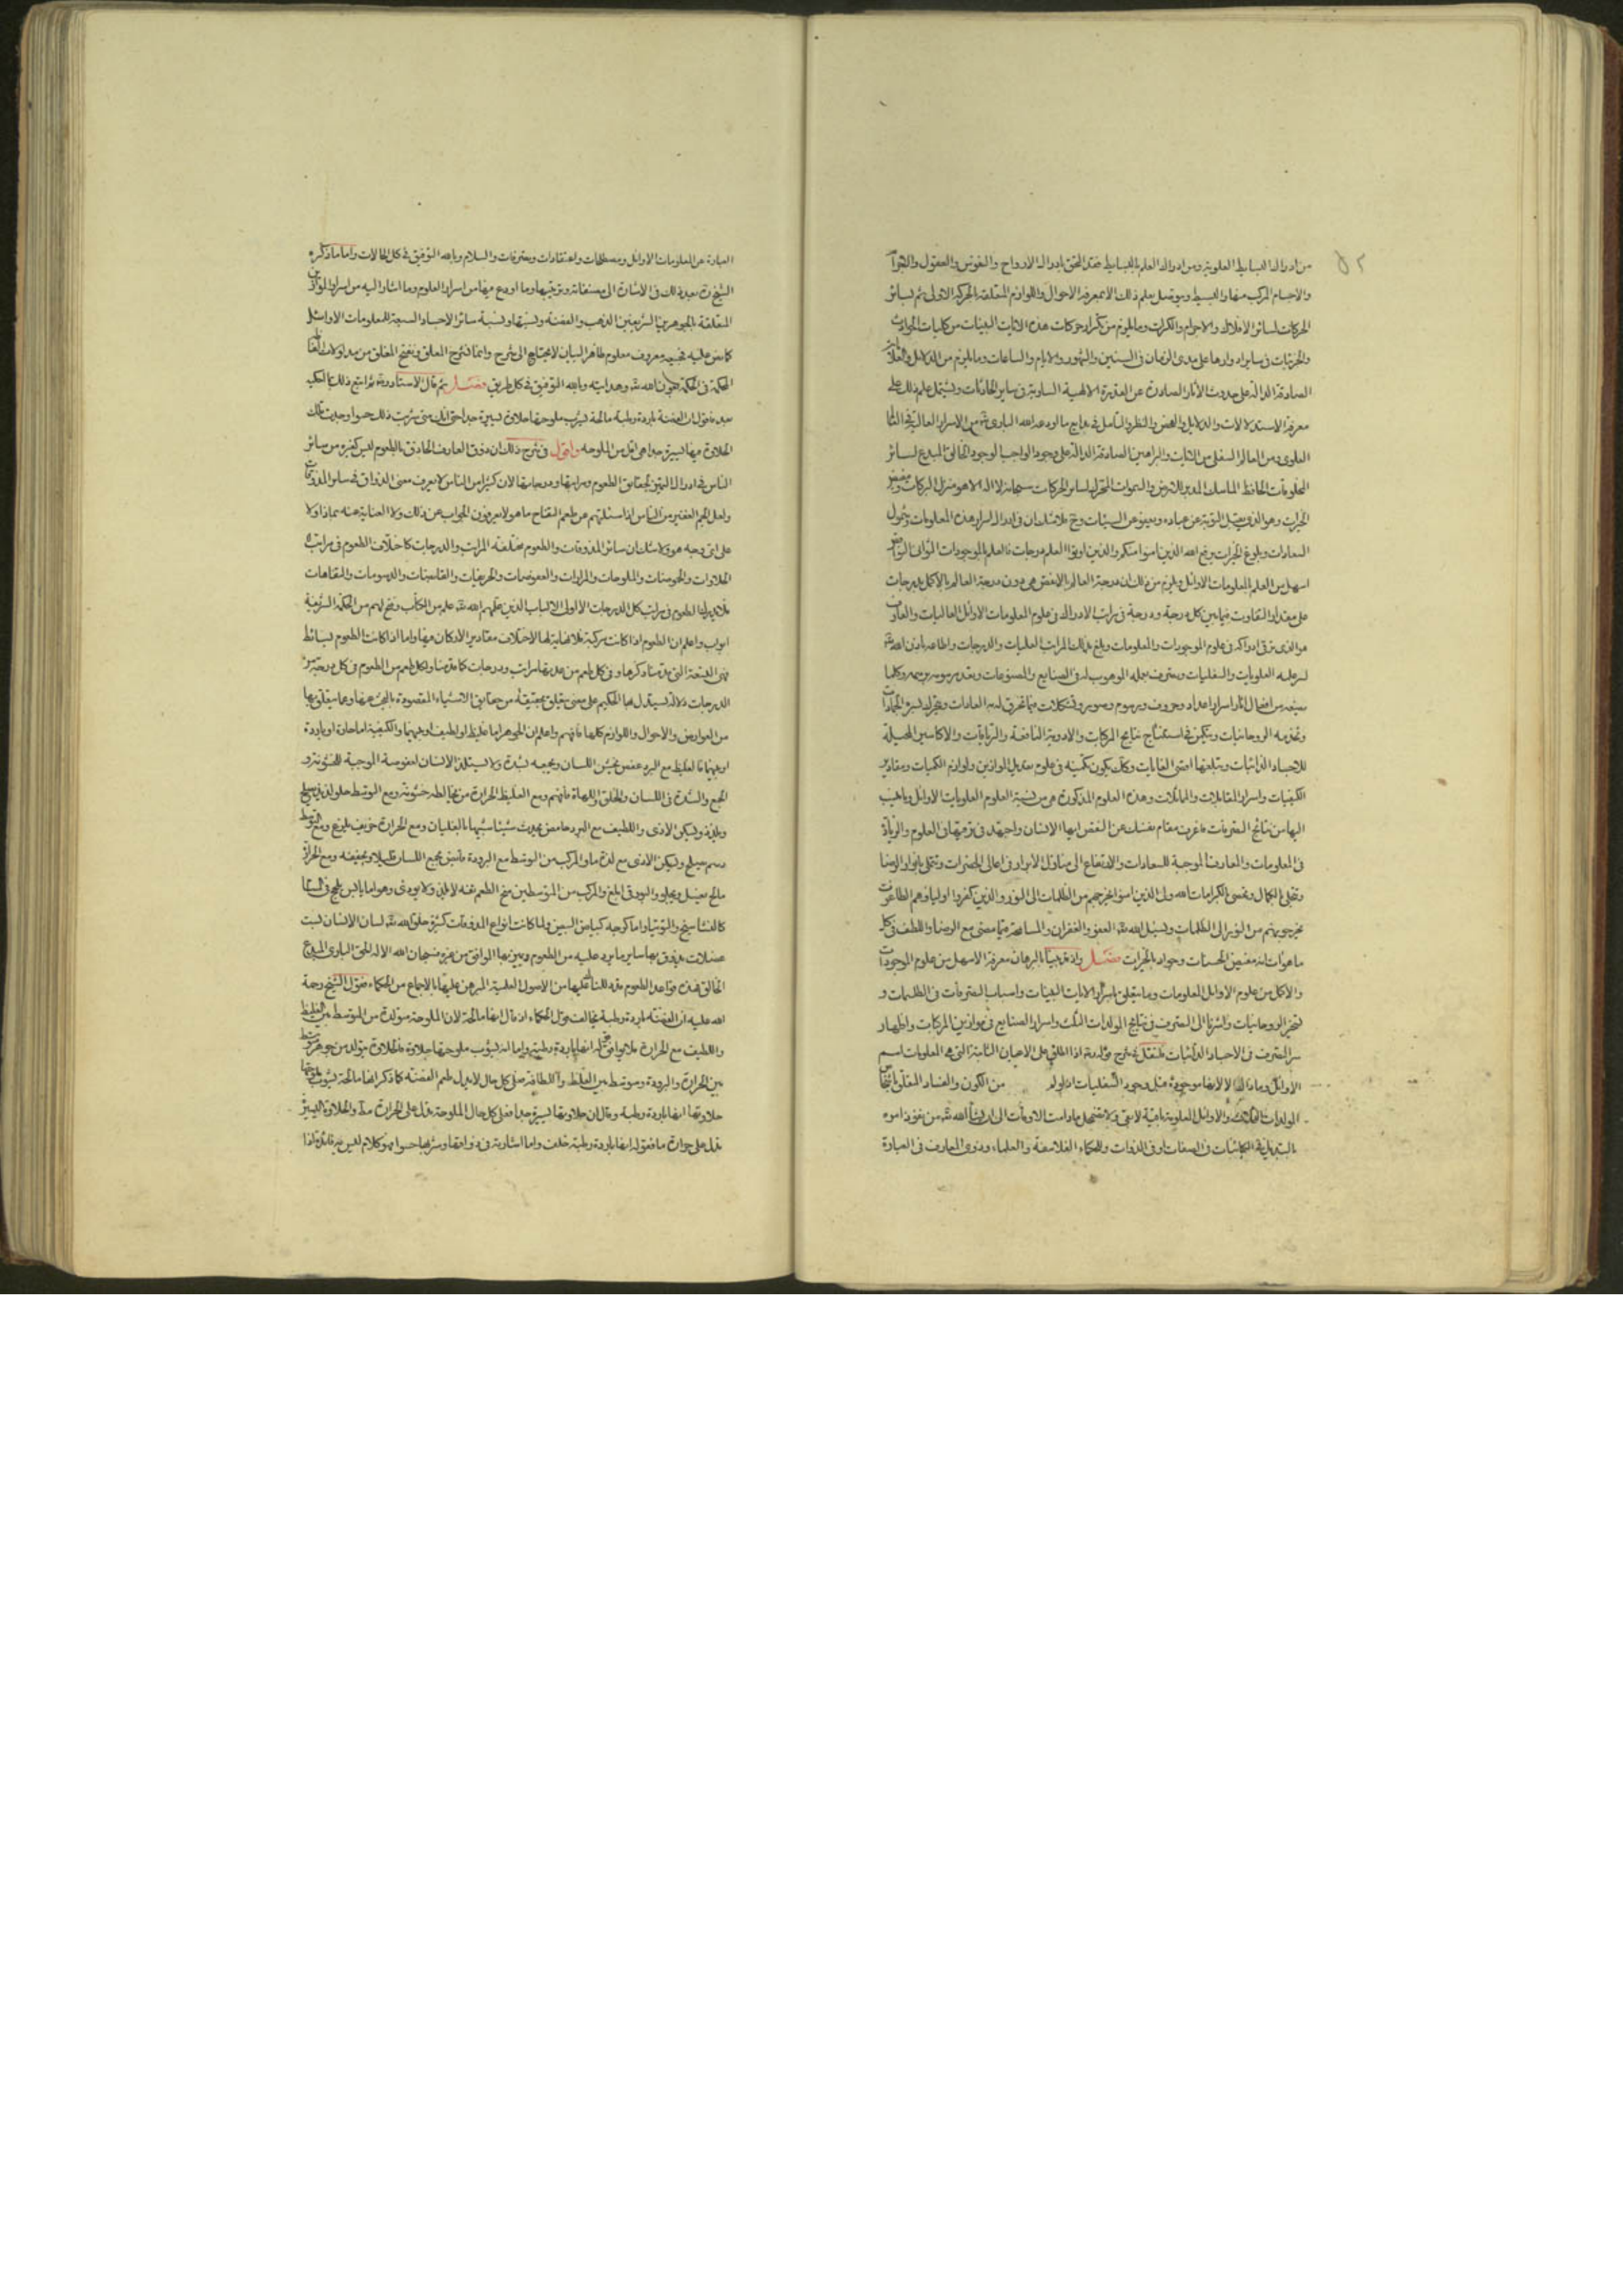 ٥٢
من ادراك البسايط العلوية ومن ادراك العلم بالبسايط فقد تحقق بادراك الارواح والنفوس والعقول
والاجسام المركب منها والبسيط ويتوصل بعلم ذلك الى معرفة الاحوال واللوازم المتعلقة بالحركة الاولى ثم بسائر
الحركات لسائر الافلاك والاجرام والكرات وما يلزم من تكرار حركات هذه الايات البينات من كليات
والجزئيات في ساير ادوارها على مدى الزمان في السنين والشهور والايام والساعات وما يلزم من الدلايل
الصادقة الدالة على حدوث الاثار الصادرة عن القدرة الالهية السارية في ساير الحادثات ويشتمل علم ذلك على
معرفة الاستدلالات والدلايل والفحص والنظر والتأمل في عجايب ما اودعه الله البارئ من الاسرار العالية
العلوي ومن العالم السفلي من الايات والبراهين الصادقة الدالة على وجود الواجب الوجود الخالق المبدع لسائر
المخلوقات الحافظ الماسك المدبر للارض والسموات المحرك لساير الحركات سبحانه لا اله الا هو منزل البركات
الخيرات وهو الذي يقبل التوبة عن عباده ويعفو عن السيئات فلا شك ان في ادراك اسرار هذه المعلومات
السعادات وبلوغ الخيرات يرفع الله الذين امنوا منكم والذين اوتوا العلم درجات فالعلم بالموجودات
اسهل من العلم بالمعلومات الاوائل ويلزم من ذلك ان درجة العالم بالانقص هي دون درجة العالم بالاكمل بدرجات
على مقدار التفاوت فيما بين كل درجة ودرجة في مراتب الادراك في علوم المعلومات الاوائل العاليات
هو الذي ترقى ادراكه في علوم الموجودات والمعلومات وبلغ بذلك المراتب العليات والدرجات واطاعه باذن الله
العلويات والسفليات ويتصرف بعلمه الموهوب له في الصنايع والمصنوعات
من افعال اثار اسرار اعداد وحروف ورسوم وصور وتشكلات
وتخدمه الروحانيات ويتمكن في استنتاج نتايج المركبات والادوية النافعة والترياقات والاكاسير
للاجساد الذائبات ويبلغها اقصى الغايات وكل ذلك يكون في علوم تعديل الموازين ولوازم الكميات ومقادير
الكيفيات واسرار المقابلات والمماثلات وهذه العلوم المذكورة هي من نسبة العلوم العلويات الاوائل
اليها من نتائج التصرفات فاعرف مقام نفسك عن النقص ايها الانسان واجتهد في ترقيها في العلوم والزيادة
في المعلومات والمعارف الموجبة للسعادات والارتفاع الى منازل الابرار في اعالي الحضرات
الكمال الكرامات الله ولي الذين امنوا يخرجهم من الظلمات الى النور والذين كفروا اولياؤهم الطاغوت
يخرجونهم من النور الى الظلمات ونسئل الله العفو والغفران والمسامحة فيما مضى مع الرضا واللطف في كل
ما هو آت انه مفيض الحسنات وجواد بالخيرات فصل واذ قد بينا بالبرهان معرفة الاسهل من علوم الموجودات
والاكمل من علوم الاوائل المعلومات وما يتعلق باسرار الايات البينات واسباب التصرفات في الطلسمات و
تسخير الروحانيات واشرنا الى التصرف في نتايج المولدات الثلث واسرار الصنايع في موازين المركبات واظهار
سر التصرف في الاجساد الذائبات فلنقل في شرح اذا اطلق على الاعيان الثابتة التي هي المعلومات اسم
الاوائل الا لانها موجودة قبل وجود السفليات من الكون والفساد
المولدات والاوائل العلوية باقية لا تبقى ولا تضمحل ما دامت الاوقات الى ان يشأ الله من نفوذ امره
بالتبديل في الكائنات في الصفات او في الذوات وللحكماء الفلاسفة والعلماء وذوي المعارف في العبارة
العبارة عن المعلومات الاوائل ومصطلحات واعتقادات ومعترفات والسلام وبالله التوفيق في كل الحالات واما ما ذكره
الشيخ بعد ذلك في الاشارة الى مصنفاته وترتيبها وما اودع فيها من اسرار العلوم وما اشار اليه من اسرار الموازين
المتعلقة بالجوهرين الشريفين الذهب والفضة ونسبتها ونسبة سائر الاجساد السبعة للمعلومات الاوائل
كما نص عليه فجميعه معروف معلوم ظاهر البيان لا يحتاج الى شرح وانما نشرح المغلق ونفتح المغلق من
الحكمة في الحكمة بعون الله وهدايته وبالله التوفيق في كل طريق فصل ثم قال الاستاد
بعده فاقول ان الفضة باردة رطبة مالحة يشوب ملوحتها حلاوة يسيرة جدا حتى انك متى شربت ذلك حسوا وجدت تلك
الحلاوة فيها يسيرة جدا هي اقل من الملوحة واقول في شرح ذلك ان ذوق العارف الحاذق بالطعوم ليس كغيره من سائر
الناس في ادراك التمييز بحقايق الطعوم ومراتبها ودرجاتها لان كثيرا من الناس لا يعرف معنى الذواق في ساير
ولعل الجم الغفير من الناس اذا سئلتهم عن طعم التفاح ما هو لا يعرفون الجواب عن ذلك ولا العناية عنه بماذا ولا
على اي وجه هو ولا شك ان سائر المذوقات والطعوم مختلفة المراتب والدرجات كاختلاف الطعوم في مراتب
الحلاوات والحموضات والملوحات والمرارات والعفوصات والحريفات والقابضات والدسومات والتفاهات
الطعوم في مراتب كل الدرجات الا اولي الالباب الذين علمهم الله علم من الكتاب وفتح لهم من الحكمة الشريفة
ابواب واعلم ان الطعوم اذا كانت مركبة فلا نهاية لها لاختلاف مقادير الاركان فيها واما اذا كانت الطعوم بسائط
فهي التسعة التي قدمنا ذكرها وفي كل طعم من عدتها مراتب ودرجات كما قدمنا ولكل طعم من الطعوم في كل درجة من
الدرجات دلالة يستدل بها الحكيم على معنى يتعلق بحقيقة من حقايق الاشياء المقصودة بالبحث عنها وعما يتعلق بها
من العوارض والاحوال واللوازم كلها فافهم واعلم ان الجوهر اما غليظ او لطيف او بينهما والكيفية اما حارة او باردة
او بينهما فالغليظ مع البرد عفص يخشن اللسان ويجمعه بشدة ولا يستلذه الانسان لعفوصته الموجبة للخشونة و
الجمع والشدة في اللسان والحلق واللهاة فافهم ومع الغليظ الحرارة مر يخالطه خشونة ومع المتوسط حلو لذيذ
ويلذذ ويسكن الاذى واللطيف مع البرد حامض يحدث شيئا شبيها بالغليان ومع الحرارة حريف يلذع
دسم ويسكن الاذى مع لذة ما والمركب من المتوسط مع البرودة قابض يجمع اللسان قليلا ويجففه ومع الحرارة
مالح يغسل ويجلو والمركب من المتوسطين مسخ الطعم تفه لا يلذ ولا يؤذي وهو اما يابس
كالنشا والتوتيا واما كرجة كبياض البيض ولما كانت انواع المذوقات كثيرة خلق الله لسان الانسان
عضلات يذوق بها ساير ما يرد عليه من الطعوم ويميز بها الموافق من غيره فسبحان الله الاله الحق البارئ المبدع
الخالق فهذه قواعد الطعوم من الاصول العلمية المبرهن عليها بالاجماع من الحكماء فقول الشيخ رحمة
الله عليه ان الفضة باردة رطبة يخالف قول الحكماء اذ قال انها مالحة لان الملوحة متولدة من المتوسط بين الغليظ
واللطيف مع الحرارة فلا يوافق قوله انها باردة رطبة واما انه يشوب ملوحتها حلاوة فالحلاوة تتولد من جوهر
بين الحرارة والبرودة ومتوسط بين الغلظ واللطافة فعلى كل حال لا يدل طعم الفضة كما ذكر انها مالحة يشوب
حلاوتها انها باردة رطبة وقال ان حلاوتها يسيرة جدا فعلى كل حال الملوحة تدل على الحرارة والحلاوة اليسيرة
تدل على حرارة ما فقوله انها باردة رطبة خلف واما اشارته في ذواقها وشربها حسوا فهو كلام ليس فيه فائدة اذا